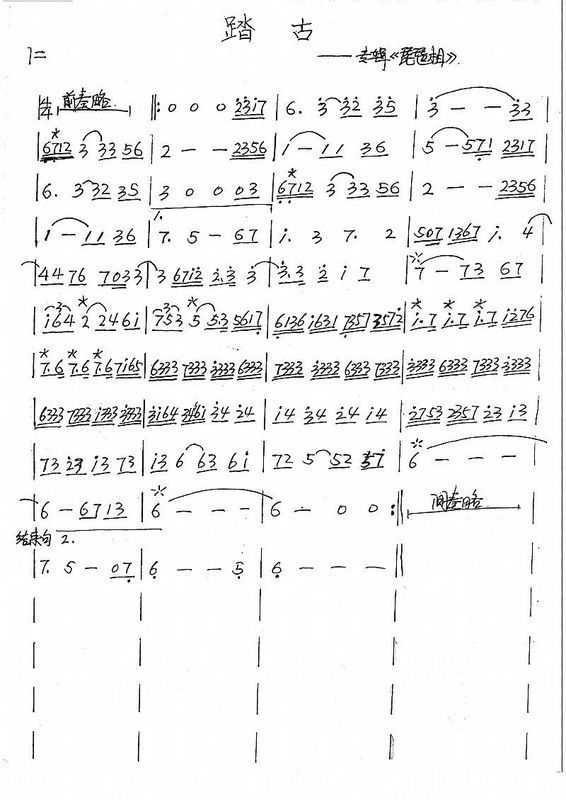 踏古
1=
——专辑《琵琶相》.
4/4 前奏略. |: 0 0 0 2317 | 6. 3 32 35 | 3 - - 33 |
6712 3 33 56 | 2 - - 2356 | 1 - 11 36 | 5 - 571 2317 |
6. 3 32 35 | 3 0 0 03 | 6712 3 33 56 | 2 - - 2356 |
1.
1 - 11 36 | 7. 5 - 67 | 1. 3 7. 2 | 507 1367 1. 4 |
4476 7033 | 3 6712 2.3 3 | 3.3 2 1 7 | 7 - 73 67 |
164 2 2461 | 753 5 53 5617 | 6136 1631 7357 3572 | 1.7 1.7 1.7 1276 |
7.6 7.6 7.67165 | 6333 7333 3333 6333 | 7333 3333 6333 7333 | 3333 6333 7333 3333 |
6333 7333 1333 3333 | 3164 3461 34 24 | 14 34 24 14 | 2753 2357 23 13 |
73 23 13 73 | 13 6 63 61 | 72 5 52 57 | 6 - - - |
6 - 6713 | 6 - - - | 6 - 0 0 :| 间奏略
结束句 2.
7. 5 - 07 | 6 - - 5 | 6 - - - |